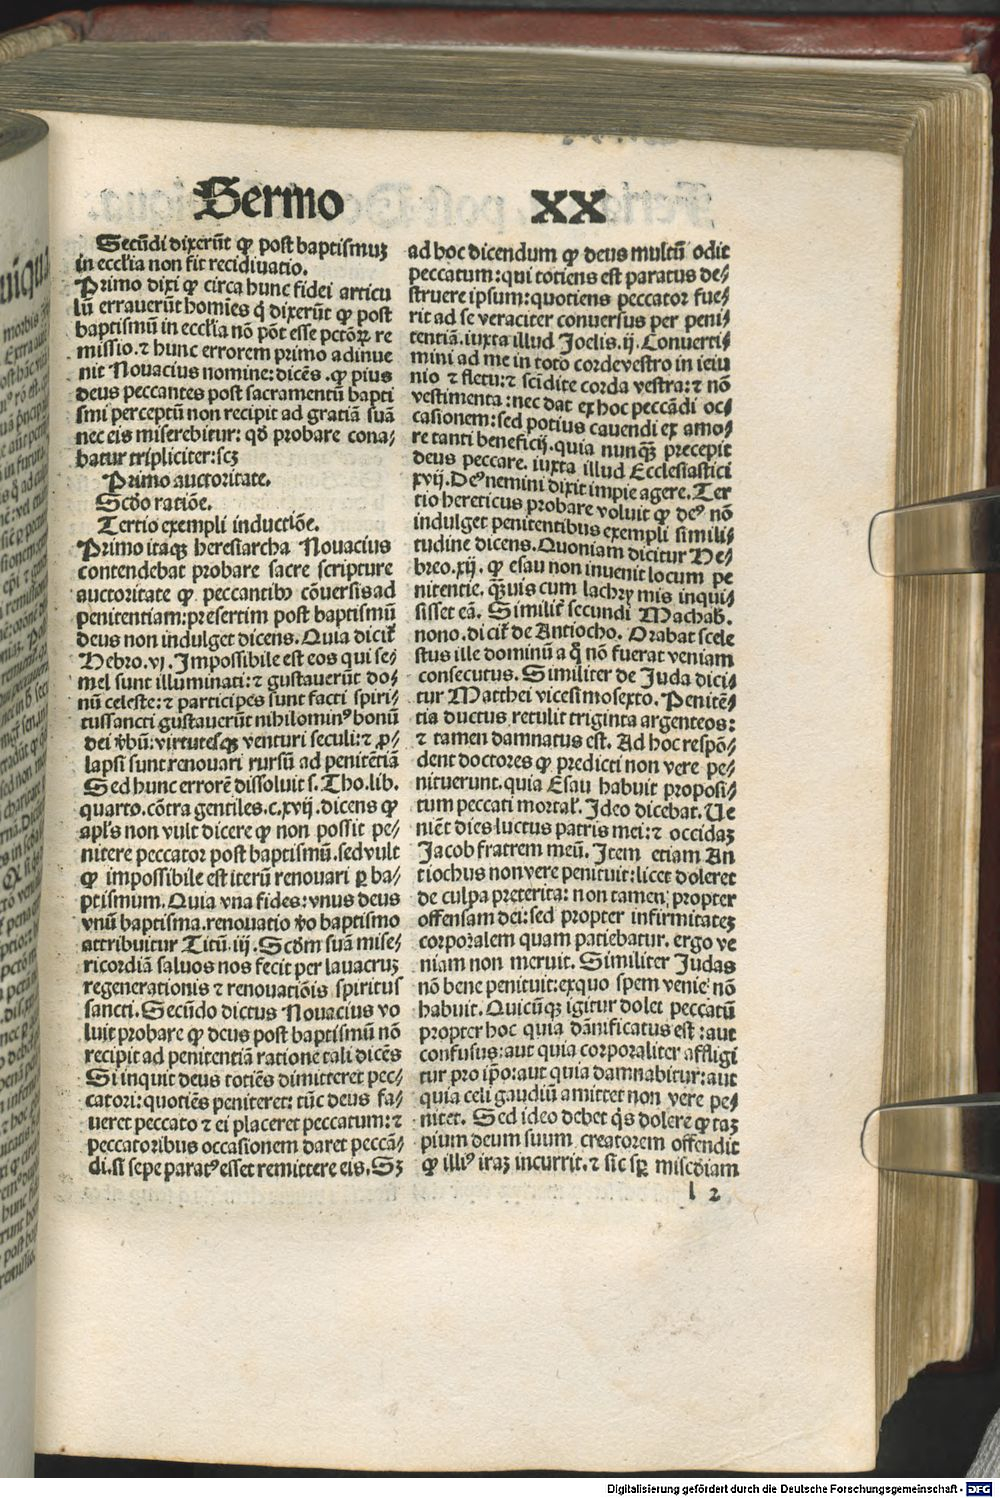 Sermo XX
Secūdi dixerūt ꝙ post baptismuꝫ
in ecclīa non fit recidiuatio.
Primo dixi ꝙ circa hunc fidei articu
lū errauerūt homīes q̄ dixerūt ꝙ post
baptismū in ecclīa nō pōt esse pctōꝝ re
missio. ⁊ hunc errorem primo adinue
nit Nouacius nomine: dicēs . ꝙ pius
deus peccantes post sacramentū bapti
smi perceptū non recipit ad gratiā suā
nec eis miserebitur: qđ probare cona⸗
batur tripliciter: scꝫ
Primo auctoritate.
Scđo ratiōe.
Tertio exempli inductiōe.
Primo itaqꝫ heresiarcha Nouacius
contendebat probare sacre scripture
auctoritate ꝙ peccantibꝰ cōuersis ad
penitentiam: presertim post baptismū
deus non indulget dicens. Quia dicit̄
Hebro. vj. Impossibile est eos qui se⸗
mel sunt illūminati: ⁊ gustauerūt do⸗
nū celeste: ⁊ participes sunt facti spiri⸗
tussancti gustauerūt nihilominꝰ bonū
dei v̄bū: virtutesqꝫ venturi seculi: ⁊ ꝓ⸗
lapsi sunt renouari rursū ad penitētiā
Sed hunc errorē dissoluit s. Tho. lib.
quarto. cōtra gentiles. c. xvij. dicens ꝙ
apl̄s non vult dicere ꝙ non possit pe⸗
nitere peccator post baptismū. sed vult
ꝙ impossibile est iterū renouari ꝑ ba⸗
ptismum. Quia vna fides: vnus deus
vnū baptisma. renouatio v̄o baptismo
attribuitur Titū. iij. Scđm suā mise⸗
ricordiā saluos nos fecit per lauacruꝫ
regenerationis ⁊ renouatiōis spiritus
sancti. Secūdo dictus Nouacius vo
luit probare ꝙ deus post baptismū nō
recipit ad penitentiā ratione tali dicēs
Si inquit deus totiēs dimitteret pec⸗
catori: quotiēs peniteret: tūc deus fa⸗
ueret peccato ⁊ ei placeret peccatum: ⁊
peccatoribus occasionem daret peccā⸗
di. si sepe paratꝰ esset remittere eis. Sꝫ
ad hoc dicendum ꝙ deus multū odit
peccatum: qui totiens est paratus de⸗
struere ipsum: quotiens peccator fue⸗
rit ad se veraciter conuersus per peni⸗
tentiā. iuxta illud Joelis. ij. Conuerti⸗
mini ad me in toto corde vestro in ieiu
nio ⁊ fletu: ⁊ scīdite corda vestra: ⁊ nō
vestimenta: nec dat ex hoc peccādi oc⸗
casionem: sed potius cauendi ex amo⸗
re tanti beneficij. quia nunqꝫ̄ precepit
deus peccare. iuxta illud Ecclesiastici
xvij. Deꝰ nemini dixit impie agere. Ter
tio hereticus probare voluit ꝙ deꝰ nō
indulget penitentibus exempli simili⸗
tudine dicens. Quoniam dicitur He⸗
breo. xij. ꝙ esau non inuenit locum pe
nitentie. qꝫ̄uis cum lachrymis inqui⸗
sisset eā. Similit̄ secundi Machab.
nono. dicit̄ de Antiocho. Orabat scele
stus ille dominū a q̊ nō fuerat veniam
consecutus. Similiter de Juda dici⸗
tur Matthei vicesimosexto. Penitē⸗
tia ductus retulit triginta argenteos:
⁊ tamen damnatus est. Ad hoc respō⸗
dent doctores ꝙ predicti non vere pe⸗
nituerunt. quia Esau habuit proposi⸗
tum peccati mortal̄. Ideo dicebat. Ve
niēt dies luctus patris mei: ⁊ occidaꝫ
Jacob fratrem meū. Item etiam An
tiochus non vere penituit: licet doleret
de culpa preterita: non tamen propter
offensam dei: sed propter infirmitateꝫ
corporalem quam patiebatur. ergo ve
niam non meruit. Similiter Judas
nō bene penituit: exquo spem venie nō
habuit. Quicūqꝫ igitur dolet peccatū
propter hoc quia dānificatus est: aut
confusus: aut quia corporaliter affligi
tur pro ip̄o: aut quia damnabitur: aut
quia celi gaudiū amittet non vere pe⸗
nitet. Sed ideo debet q̄s dolere ꝙ taꝫ
pium deum suum creatorem offendit
ꝙ illiꝰ iraꝫ incurrit. ⁊ sic sꝑ miscđiam
l 2
Digitalisierung gefördert durch die Deutsche Forschungsgemeinschaft - DFG